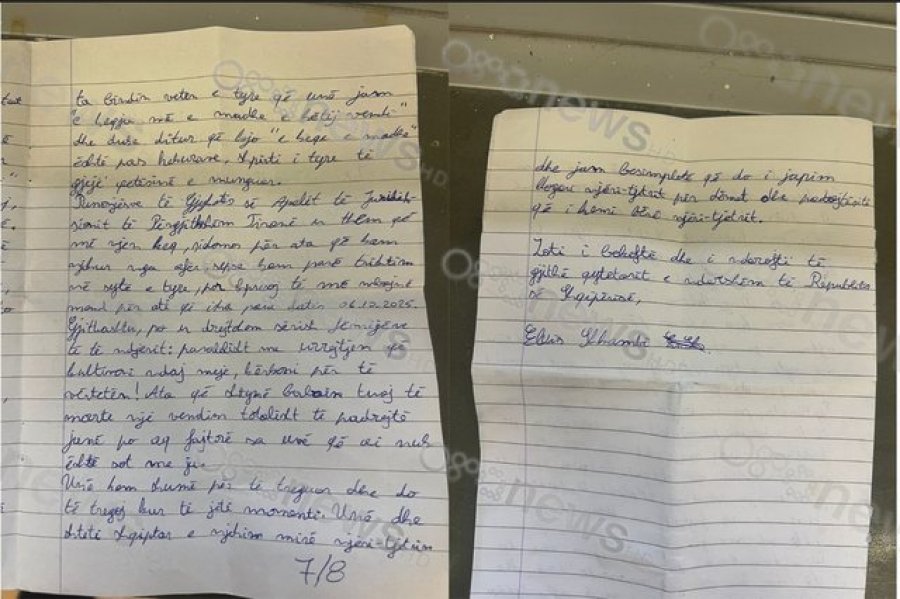 ta bindin veten e tyre që unë jam
"e keqja më e madhe e këtij vendi"
dhe duke ditur që kjo "e keqe e madhe"
është pas hekurave, shpirti i tyre të
gjejë qetësinë e munguar.
Punonjësve të Gjykatës së Apelit të Juridik-
sionit të Përgjithshëm Tiranë u them që
më vjen keq, sidomos për ata që kam
njohur nga afër sepse kam parë trishtim
në sytë e tyre, por
mend për atë që isha para datës 06.10.2025.
Gjithashtu, po u drejtohem sërish fëmijëve
të të ndjerit: paralelisht me urrejtjen që
kultivoni ndaj meje, kërkoni për të
vërtetën! Ata që shtynë babain tuaj të
marrte një vendim totalisht të padrejtë
janë po aq fajtorë sa unë që ai nuk
është sot me ju.
Unë kam shumë për të treguar dhe do
të tregoj kur të jetë momenti. Unë dhe
shteti shqiptar e njohim mirë njëri-tjetrin
7/8
dhe jam besimplote që do i japim
llogari njëri-tjetrit për dëmet dhe padrejtësitë
që i kemi bërë njëri-tjetrit.
Zoti i bekoftë dhe i ndoreshti të
gjithë qytetarët e ndershëm të Republikës
së Shqipërisë,
Elvis Shkambi
news